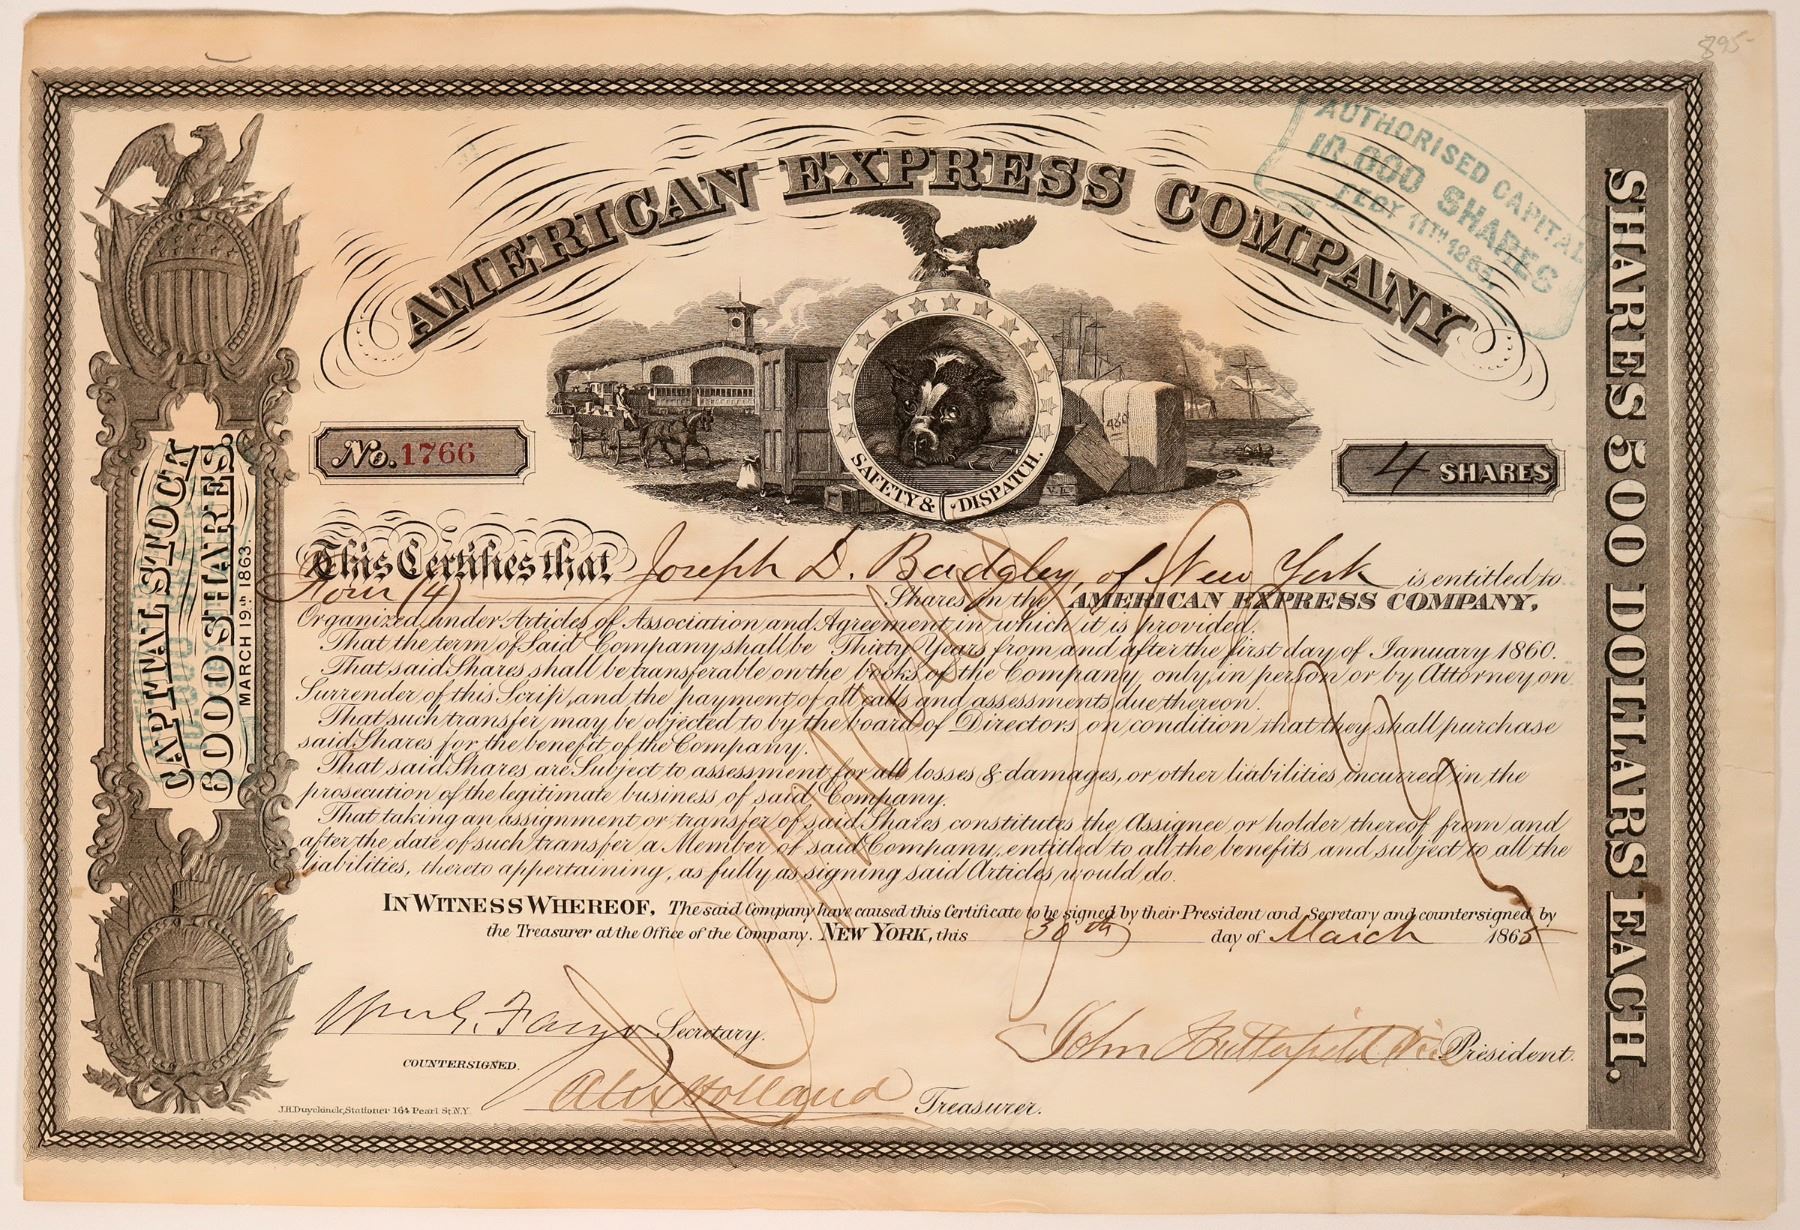 895-
AMERICAN EXPRESS COMPANY
AUTHORISED CAPITAL
10.000 SHARES
FEBY 11TH 1864.
SAFETY & DISPATCH.
450
V.L.
No. 1766
4 SHARES
CAPITAL STOCK
6000 SHARES.
MARCH 19TH 1863.
SHARES 500 DOLLARS EACH.
This Certifies that Joseph D. Badgley, of New York is entitled to
Four (4) Shares in the AMERICAN EXPRESS COMPANY,
Organized under Articles of Association and Agreement in which it is provided
That the term of Said Company shall be Thirty Years from and after the first day of January 1860.
That said Shares shall be transferable on the books of the Company only, in person or by Attorney on
Surrender of this Scrip, and the payment of all calls and assessments due thereon.
That such transfer may be objected to by the board of Directors on condition that they shall purchase
said Shares for the benefit of the Company.
That said Shares are Subject to assessment for all losses & damages, or other liabilities incurred in the
prosecution of the legitimate business of said Company.
That taking an assignment or transfer of said Shares constitutes the Assignee or holder thereof from and
after the date of such transfer a Member of said Company, entitled to all the benefits and subject to all the
liabilities, thereto appertaining, as fully as signing said Articles would do.
IN WITNESS WHEREOF, The said Company have caused this Certificate to be signed by their President and Secretary and countersigned by
the Treasurer at the Office of the Company. NEW YORK, this 30th day of March 1865
Wm G. Fargo Secretary.
John Butterfield Vice President.
COUNTERSIGNED.
Alex Holland Treasurer.
J.H. Duyckinck, Stationer 164 Pearl St. N.Y.
Cancelled